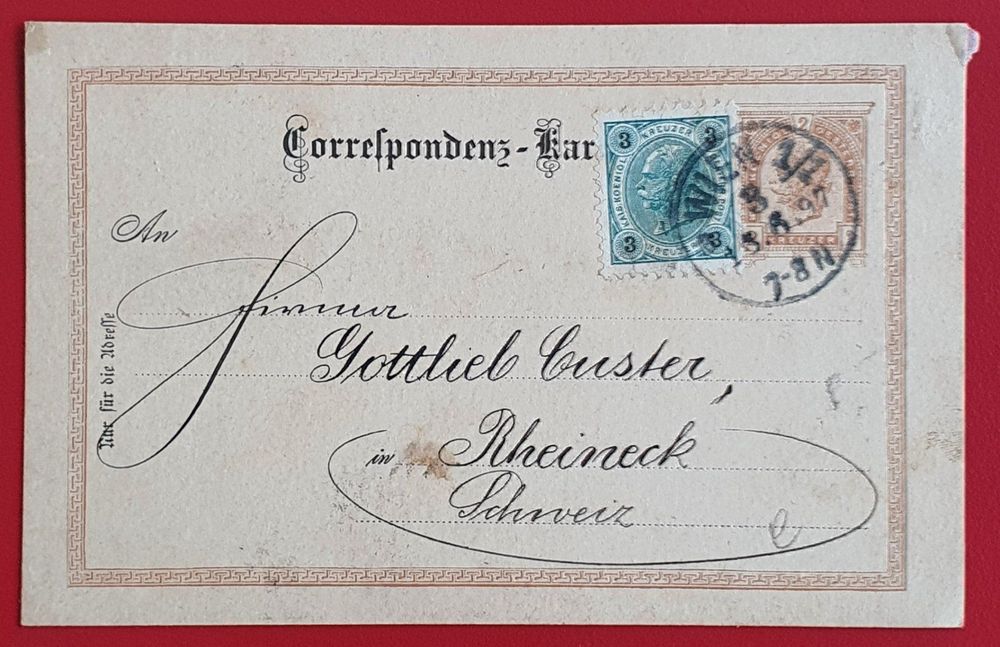 Correspondenz-Kar
3 KREUZER 3
KAIS·KOENIGL
3 KREUZER 3
2
KREUZER
WIEN 1/1
8
7-8 N
An
Firma
Gottlieb Custer,
in Rheineck
Schweiz
Nur für die Adresse